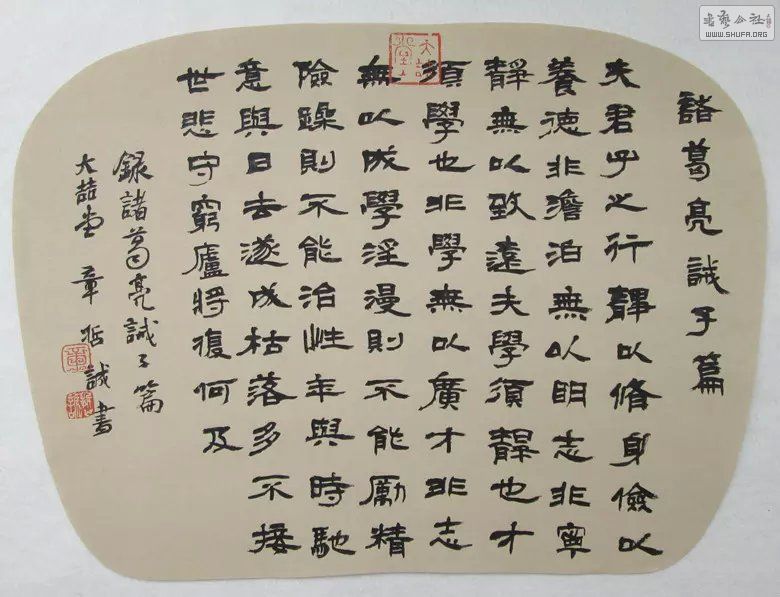 諸葛亮誡子篇
夫君子之行靜以脩身儉以
養德非澹泊無以明志非寧
靜無以致遠夫學須靜也才
須學也非學無以廣才非志
無以成學淫漫則不能勵精
險躁則不能治性年與時馳
意與日去遂成枯落多不接
世悲守窮廬將復何及
錄諸葛亮誡子篇
大喆堂 章哲誠書
書藝公社
WWW.SHUFA.ORG